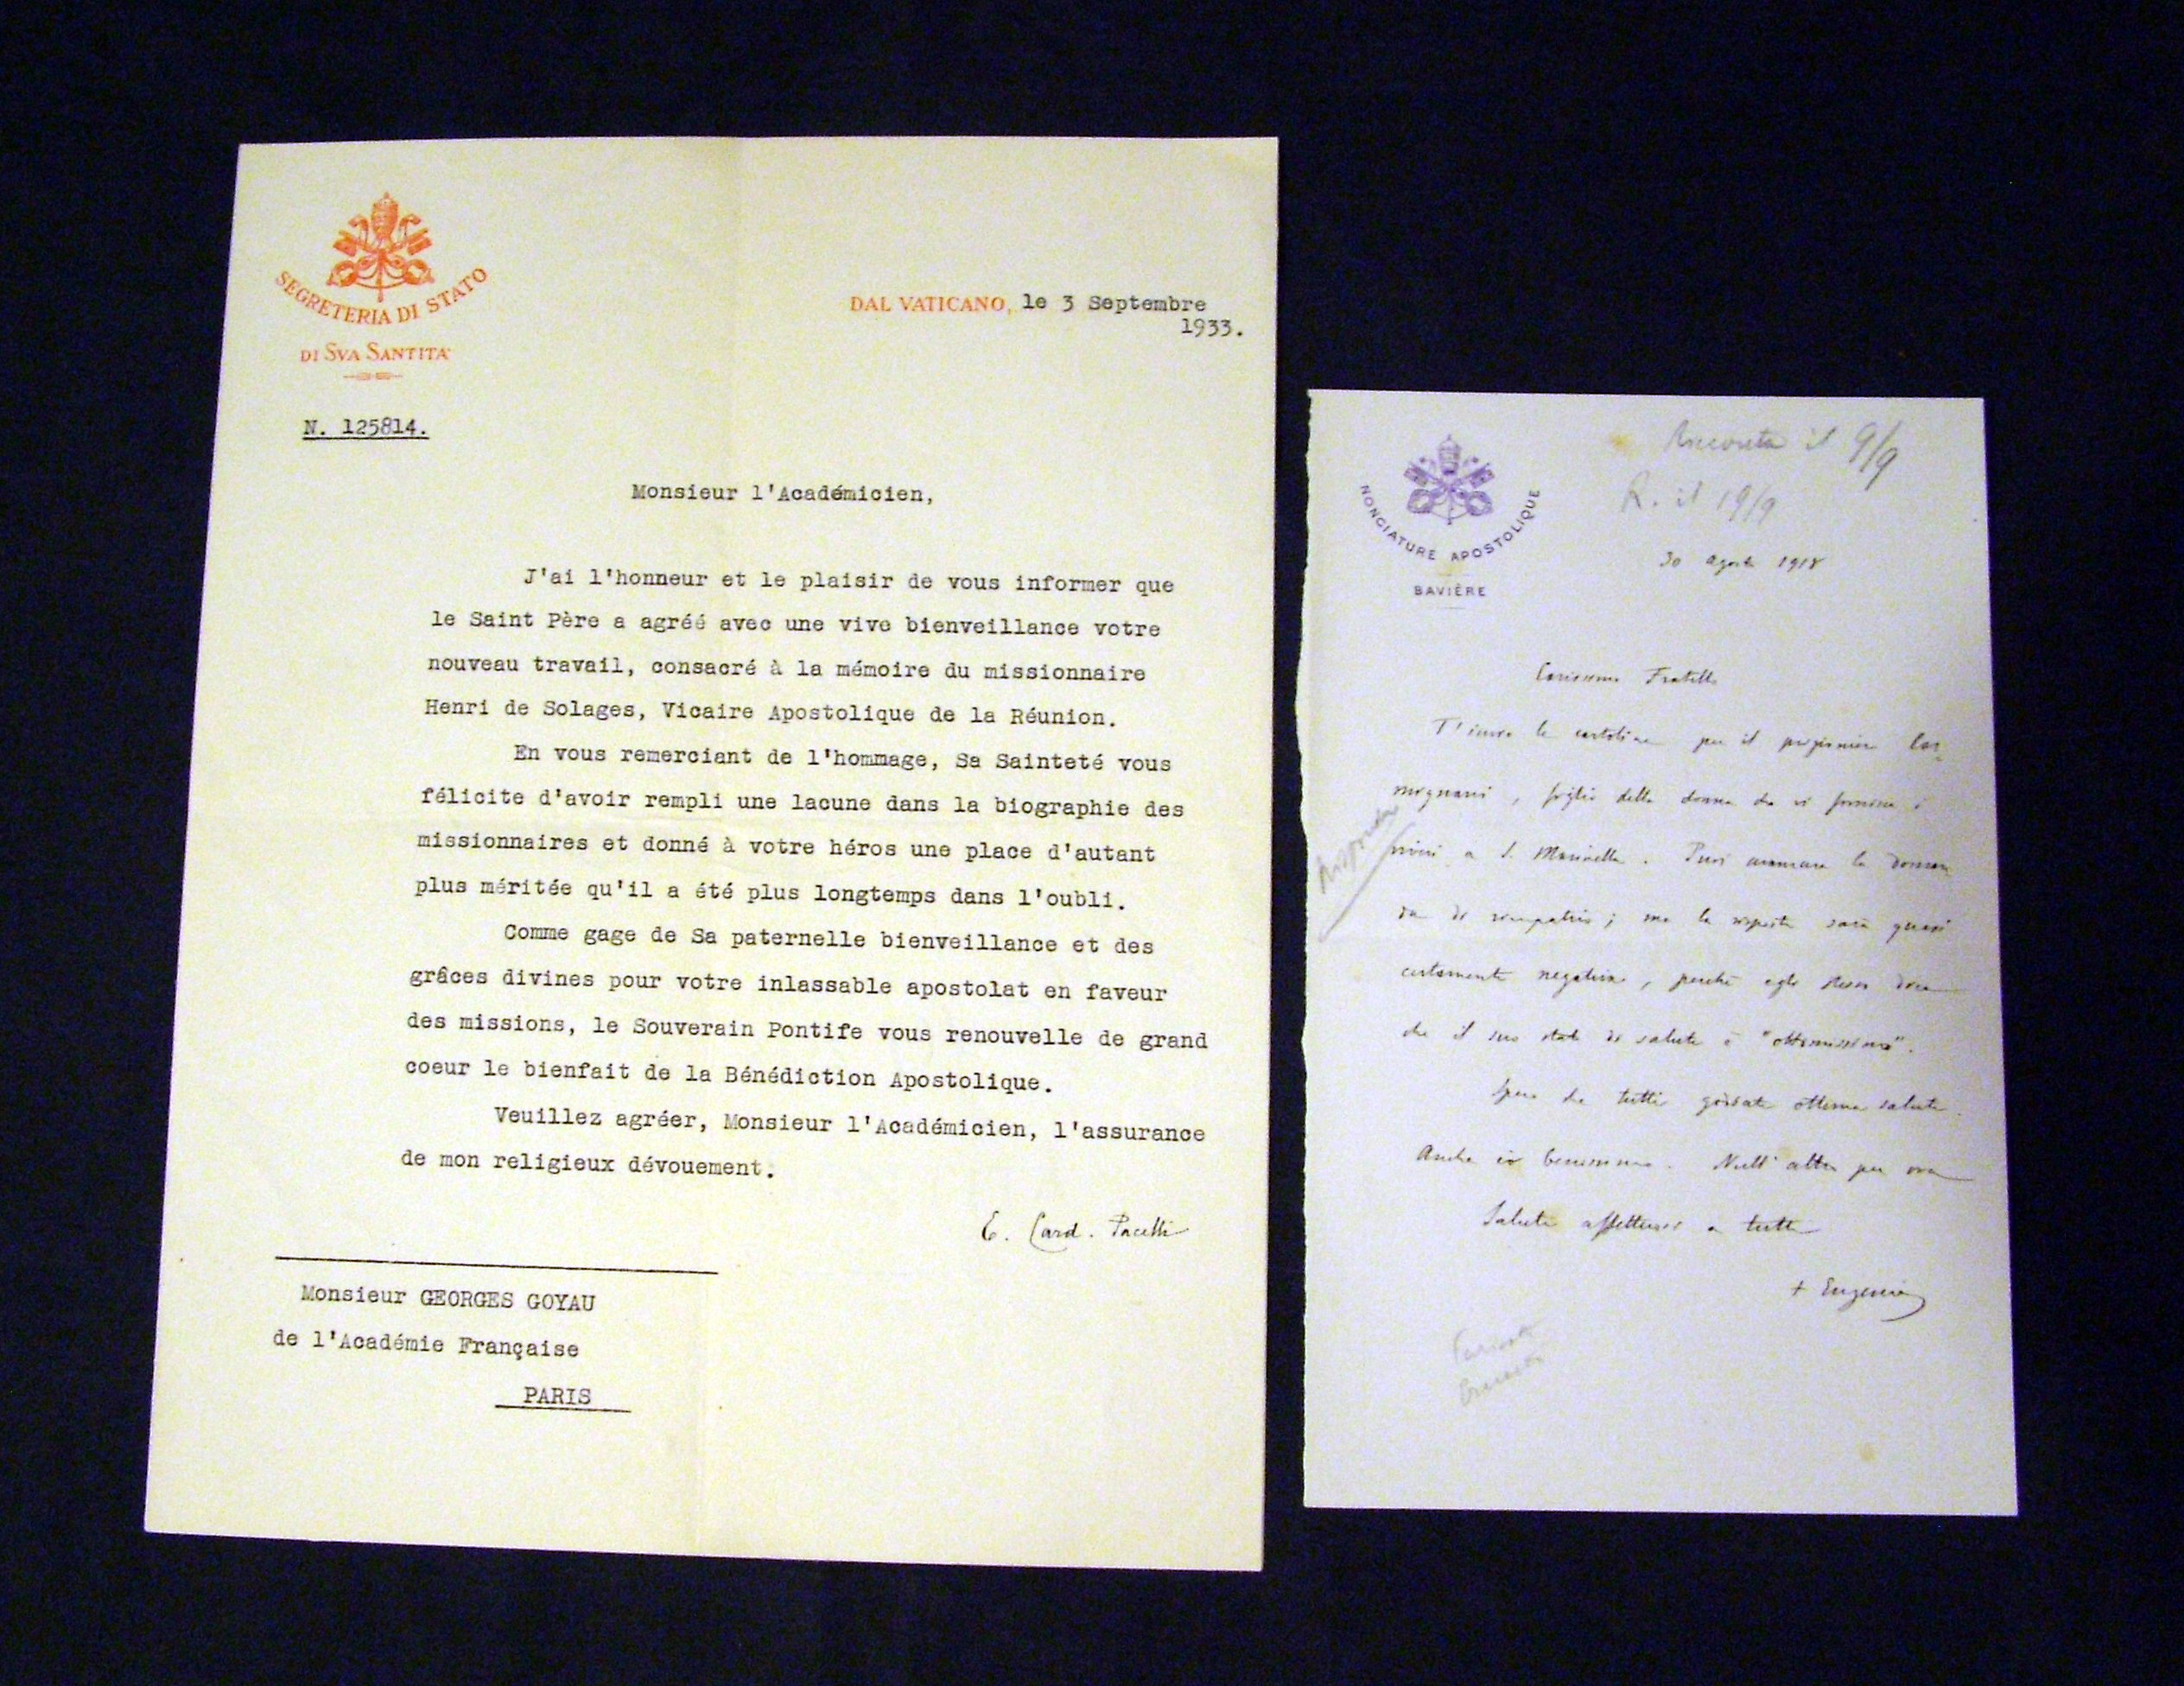 SEGRETERIA DI STATO
DI SVA SANTITA'
DAL VATICANO, le 3 Septembre
1933.
N. 125814.
Monsieur l'Académicien,
J'ai l'honneur et le plaisir de vous informer que
le Saint Père a agréé avec une vive bienveillance votre
nouveau travail, consacré à la mémoire du missionnaire
Henri de Solages, Vicaire Apostolique de la Réunion.
En vous remerciant de l'hommage, Sa Sainteté vous
félicite d'avoir rempli une lacune dans la biographie des
missionnaires et donné à votre héros une place d'autant
plus méritée qu'il a été plus longtemps dans l'oubli.
Comme gage de Sa paternelle bienveillance et des
grâces divines pour votre inlassable apostolat en faveur
des missions, le Souverain Pontife vous renouvelle de grand
coeur le bienfait de la Bénédiction Apostolique.
Veuillez agréer, Monsieur l'Académicien, l'assurance
de mon religieux dévouement.
E. Card. Pacelli
Monsieur GEORGES GOYAU
de l'Académie Française
PARIS
NONCIATURE APOSTOLIQUE
BAVIÈRE
il 9/9
R. il 19/9
30 agosto 1918
Carissimo Fratello
T'invio la cartolina per il prigioniero
figlio della donna che vi fornisce i
viveri a S. Marinella. Puoi avanzare la doman
da di rimpatrio; ma la risposta sarà quasi
certamente negativa, perchè egli stesso dice
che il suo stato di salute è "ottimissimo".
Spero che tutti godiate ottima salute.
Anche io benissimo. Null'altro per ora
Saluti affettuosi a tutti
+ Eugenio